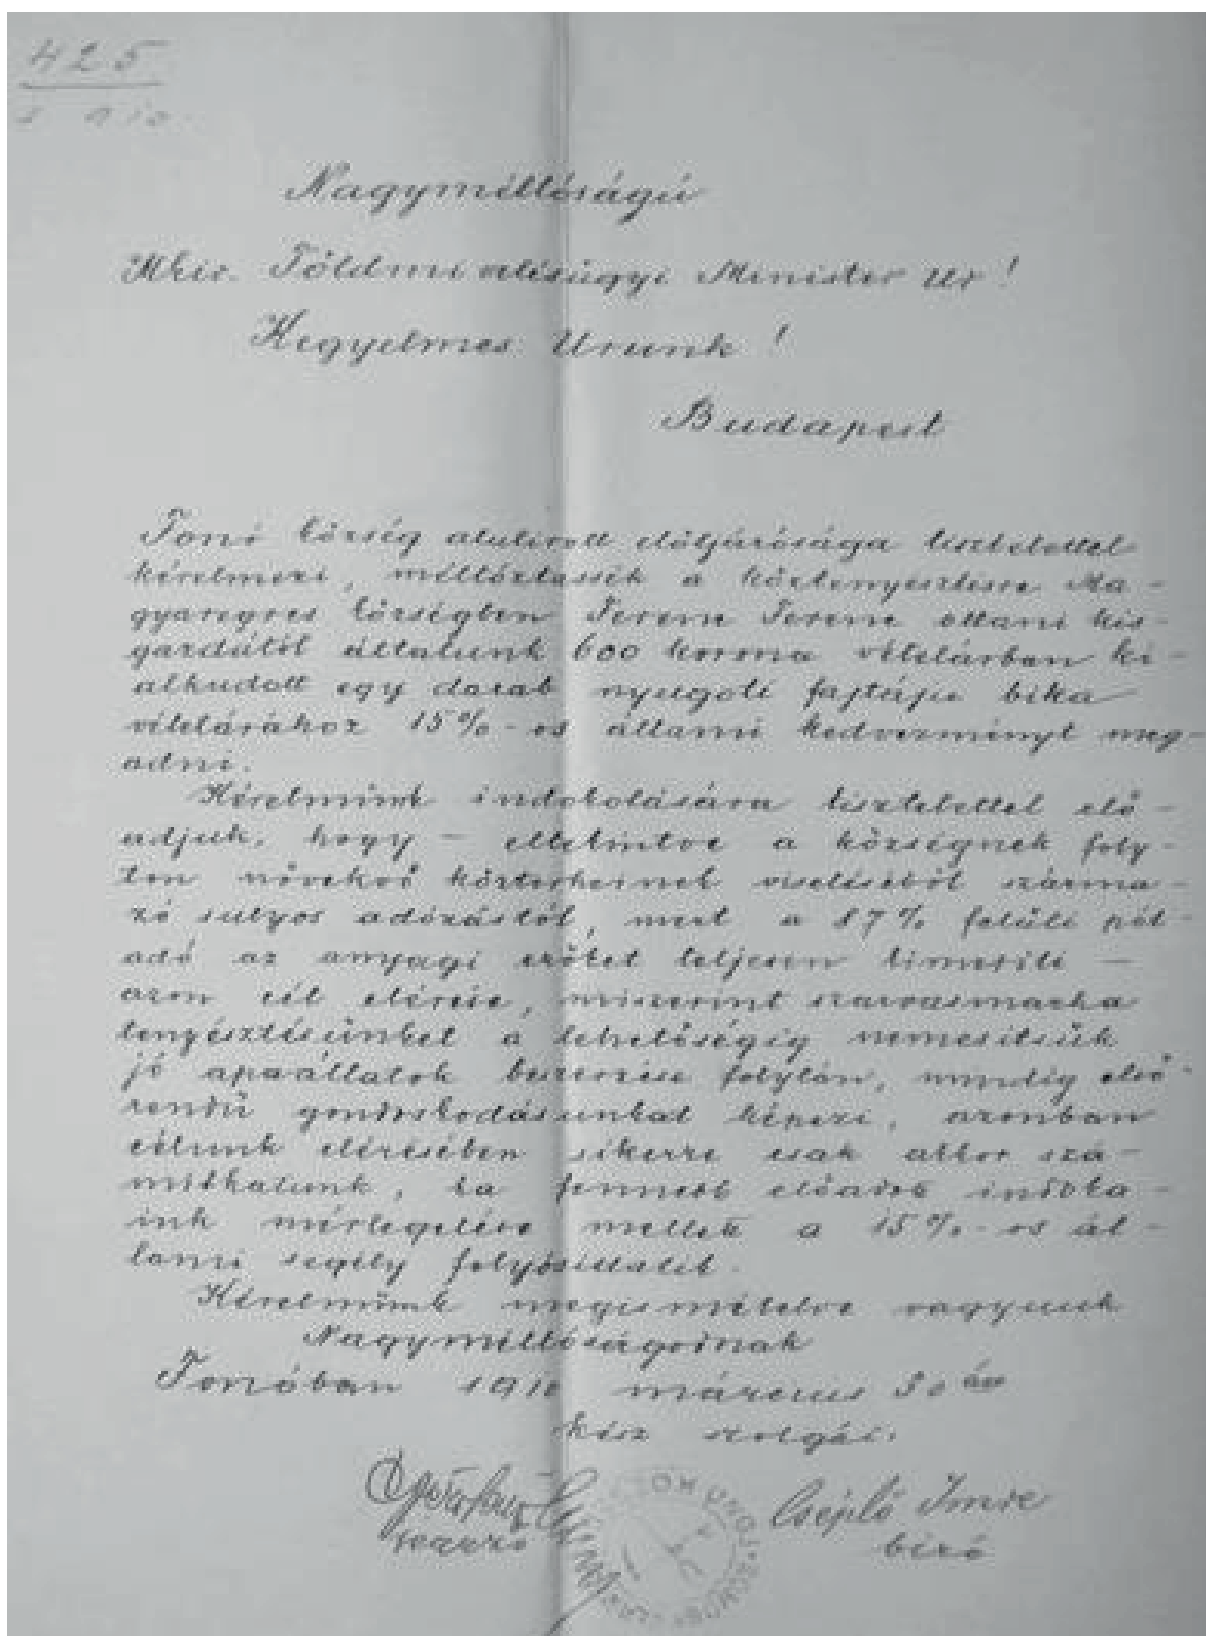 425
Nagyméltóságú
Mkir. Földmivelésügyi Minister Ur!
Kegyelmes Urunk!
Budapest
Fonó község alulirott előljárósága tisztelettel
kérelmezi, méltóztassék a köztenyésztésre Ma-
gyaregres községben Ferenc Ferenc ottani kis-
gazdától általunk 600 korona vételárban ki-
alkudott egy darab nyugoti fajtáju bika
vételárához 15%-os állami kedvezményt meg-
adni.
Kérelmünk indokolására tisztelettel elő-
adjuk, hogy – eltekintve a községnek foly-
ton növekvő közterheinek viseléséből szárma-
zó sulyos adózástól, mert a 87% felüli pót-
adó az anyagi erőket teljesen kimeríti –
azon cél elérése, miszerint szarvasmarha
tenyésztésünket a lehetőségig nemesitsük
jó apaállatok beszerzése folytán, mindig első-
rendü gondoskodásunkat képezi, azonban
célunk elérésében sikerre csak akkor szá-
mithatunk, ha fennebb előadott indoka-
ink mérlegelése mellett a 15%-os ál-
lami segély folyósittatik.
Kérelmünk megismételve vagyunk
Nagyméltóságodnak
Fonóban 1910 március 30 án
kész szolgái.
Cséplő Imre
jegyző
biró